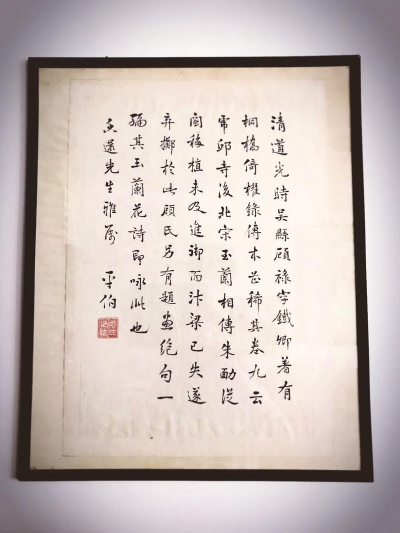 清道光時吳縣顧祿字鐵卿著有
桐橋倚櫂錄傳本甚稀其卷九云
虎邱寺後北宋玉蘭相傳朱勔從
閩移植未及進御而汴梁已失遂
弃擲於此顧氏另有題畫絕句一
編其玉蘭花詩即咏此也
先生雅屬 平伯